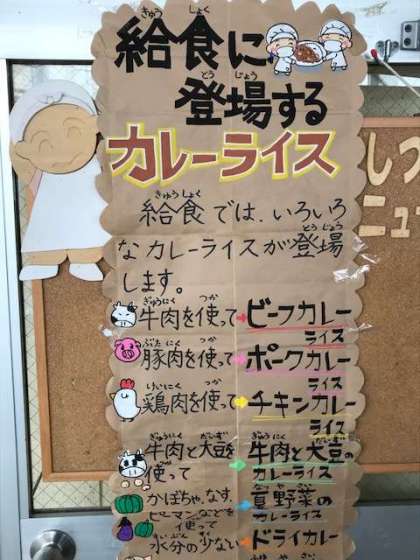 給食に
きゅう しょく
登場する
とう じょう
カレーライス
給食では、いろいろ
きゅうしょく
なカレーライスが登場
とうじょう
します。
牛肉を使って→ビーフカレー
ぎゅうにく つか
ライス
豚肉を使って→ポークカレー
ぶた にく つか
ライス
鶏肉を使って→チキンカレー
けいにく つか
ライス
牛肉と大豆を
ぎゅうにく だいず
使って
つか
→牛肉と大豆の
ぎゅうにく だいず
カレーライス
かぼちゃ、なす、
ピーマンなどを
使って
→夏野菜の
なつ や さい
カレーライス
水分の少ない→ドライカレー
すいぶん すく
しつ
ニュー